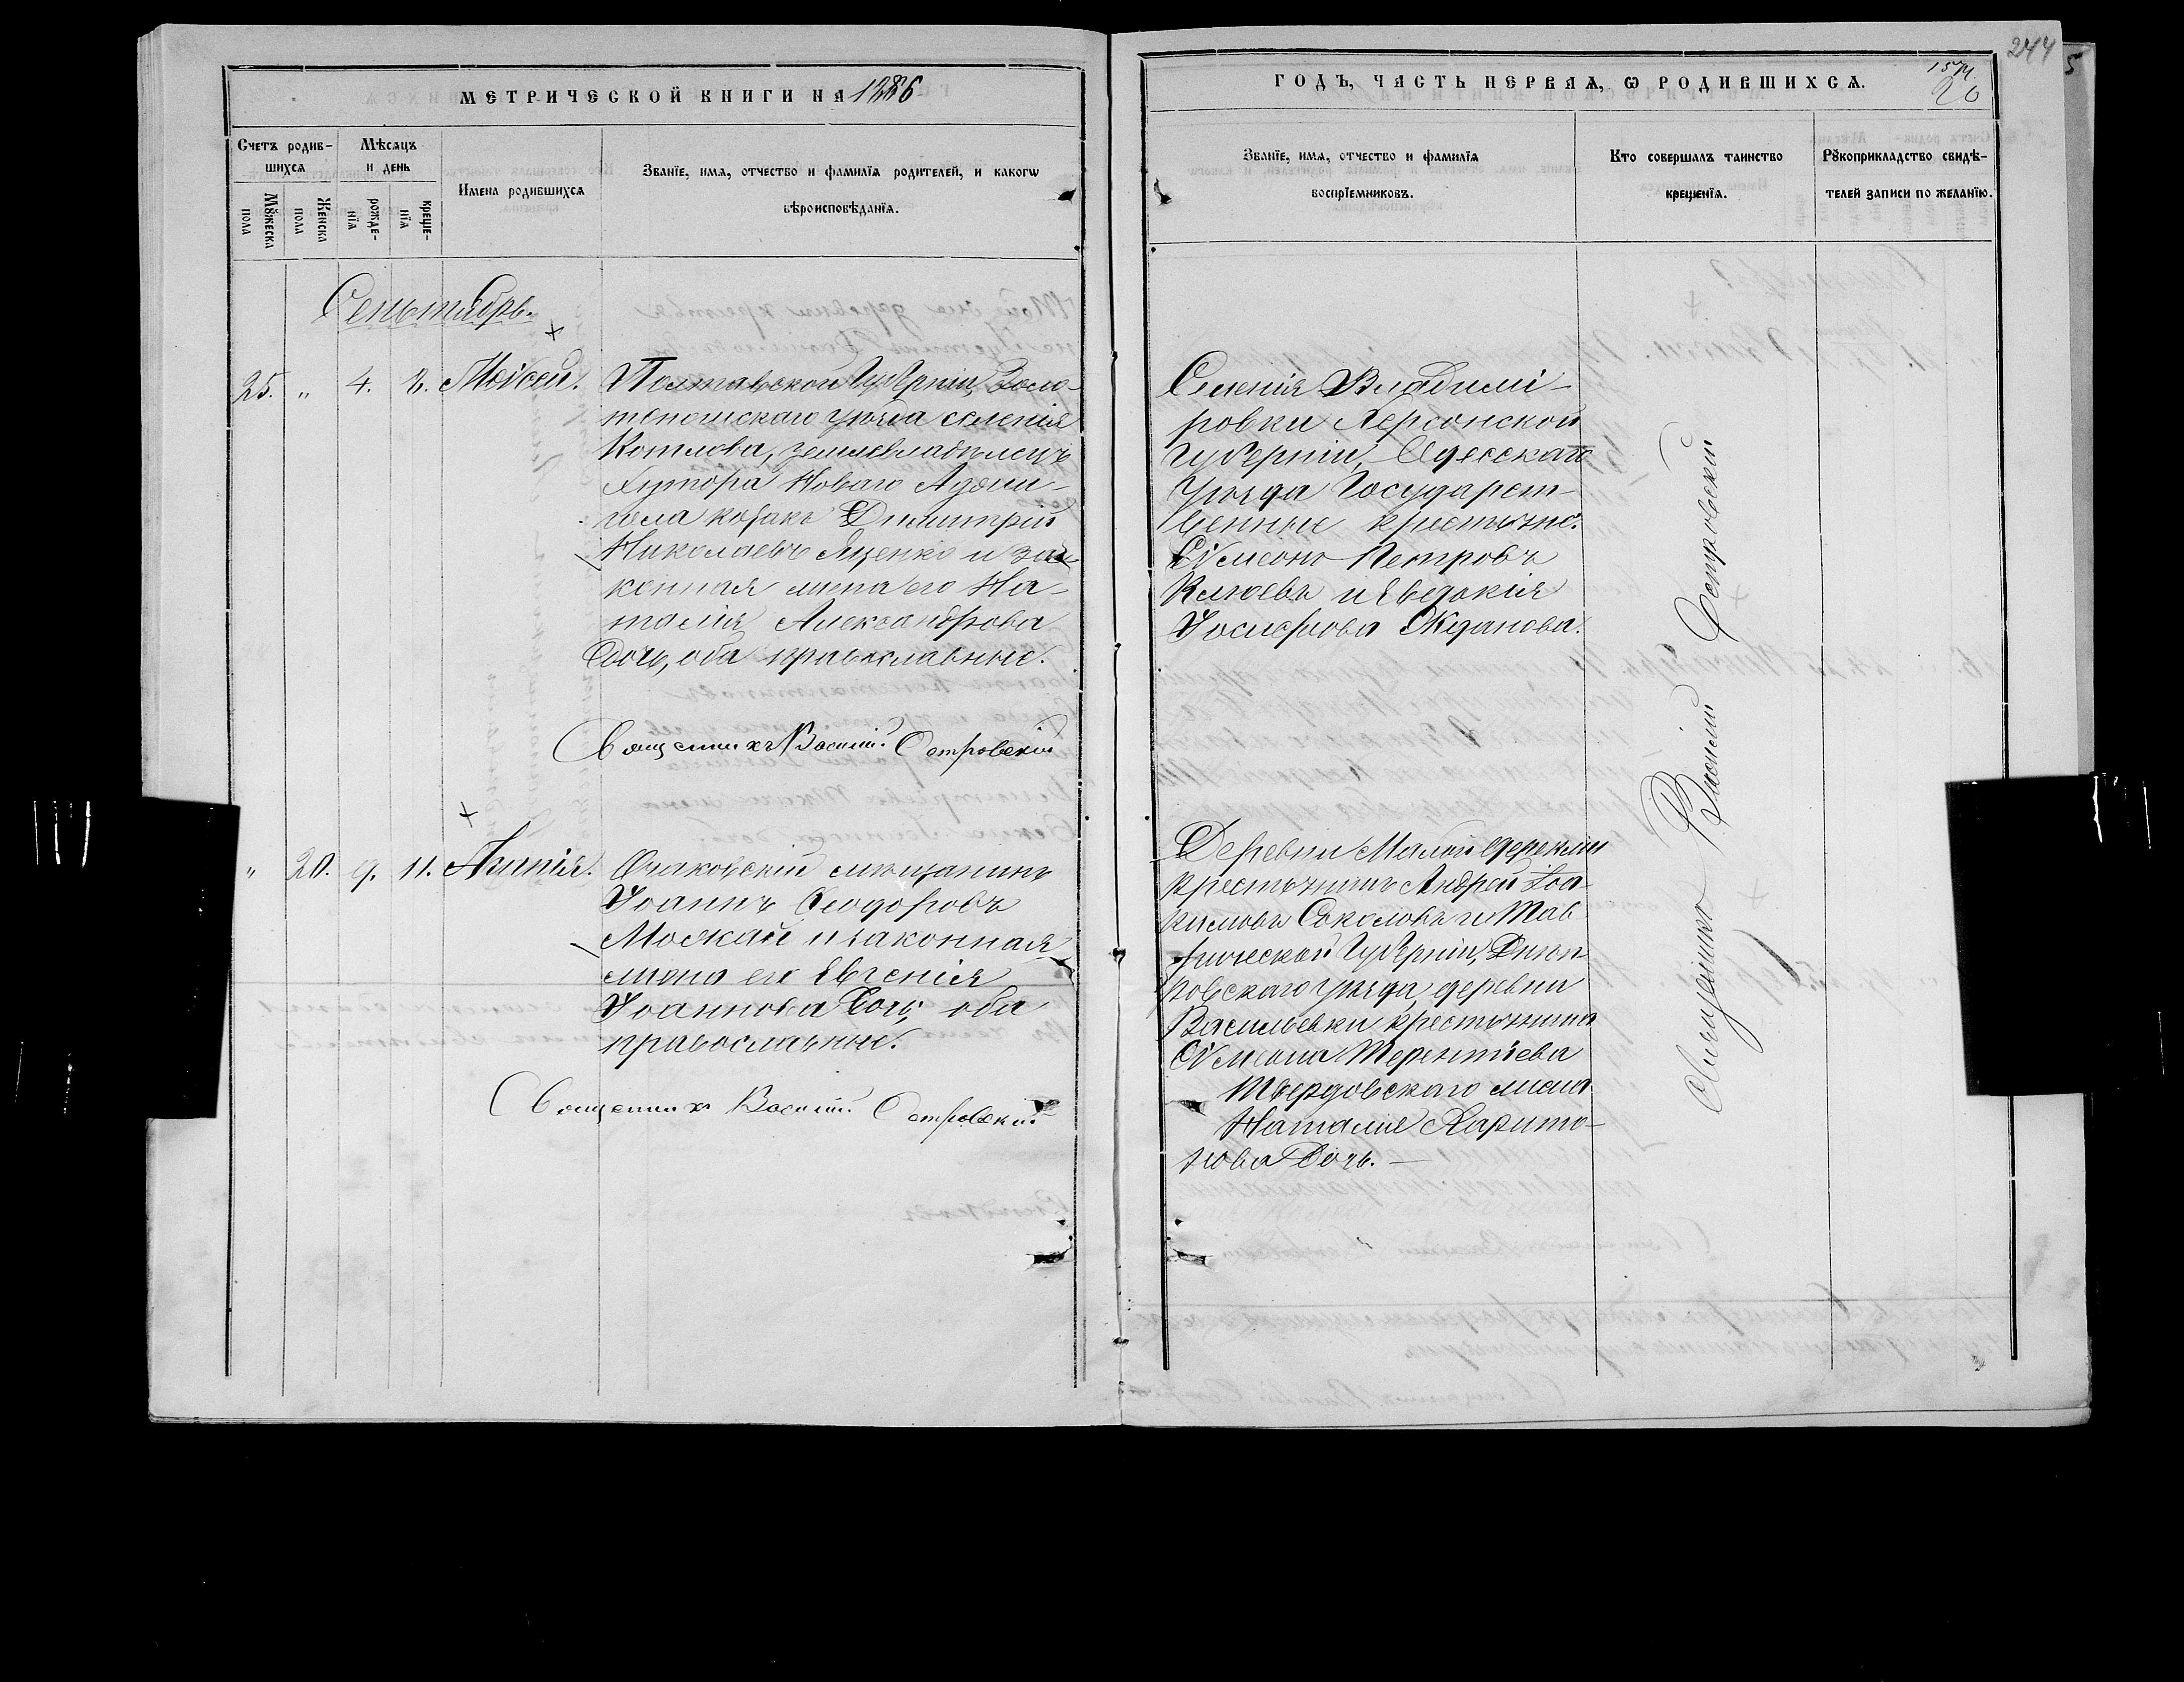 МЕТРИЧЕСКОЙ КНИГИ НА 1886
Счетъ родив-
шихся
Мѣсяцъ
и день
Имена родившихся
Званїе, имя, отчество и фамилїя родителей, и какогѡ
вѣроисповѣданїя.
Мꙋжеска
пола
Женска
пола
рожде-
нїя
креще-
нїя
Сентябрь.
25. " 4. 8. Моисей.
Полтавской Губерніи, Золо-
тоношскаго уѣзда селенія
землевладѣлецъ
Хутора Новаго
козакъ Димитрій
Николаевъ Яценко и за-
конная жена его На-
талія Александрова
дочь, оба православные.
Священникъ Василій Островскій
" 20. 9. 11.
Очаковскій мѣщанинъ
Іоаннъ Ѳеодоровъ
и законная
жена его Евгенія
Іоаннова дочь, оба
православные.
Священникъ Василій Островскій
ГОДЪ, ЧАСТЬ ПЕРВАЯ, Ѡ РОДИВШИХСЯ.
244
5
20
Званїе, имя, отчество и фамилїя
воспрїемниковъ.
Кто совершалъ таинство
крещенїя.
Рꙋкоприкладство свидѣ-
телей записи по желанїю.
Селенія Владимі-
ровки Херсонской
Губерніи, Одесскаго
уѣзда Государст-
венные крестьяне:
Сѵмеонъ Петровъ
и Евдокія
Іосифова Жданова.
Деревни Малой
крестьянинъ Андрей Іоа-
кимовъ Соколовъ и Тав-
рической Губерніи, Днѣп-
ровскаго уѣзда, деревни
Васильевки крестьянина
Сѵмеона Терентіева
Твердовскаго жена
Наталія Харито-
нова дочь.
Священникъ Василій Островскій